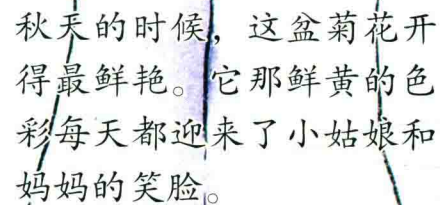 秋天的时候，这盆菊花开
得最鲜艳。它那鲜黄的色
彩每天都迎来了小姑娘和
妈妈的笑脸。